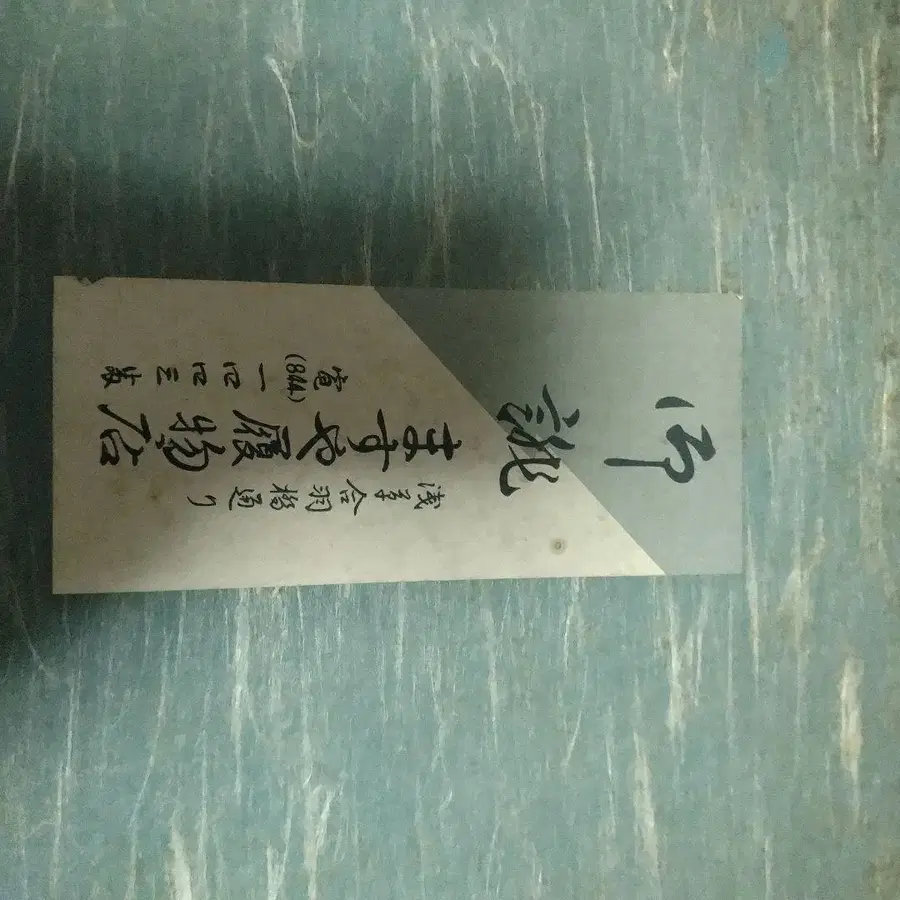 御誂
浅草合羽橋通り
ますや履物店
電(844)一四四三番